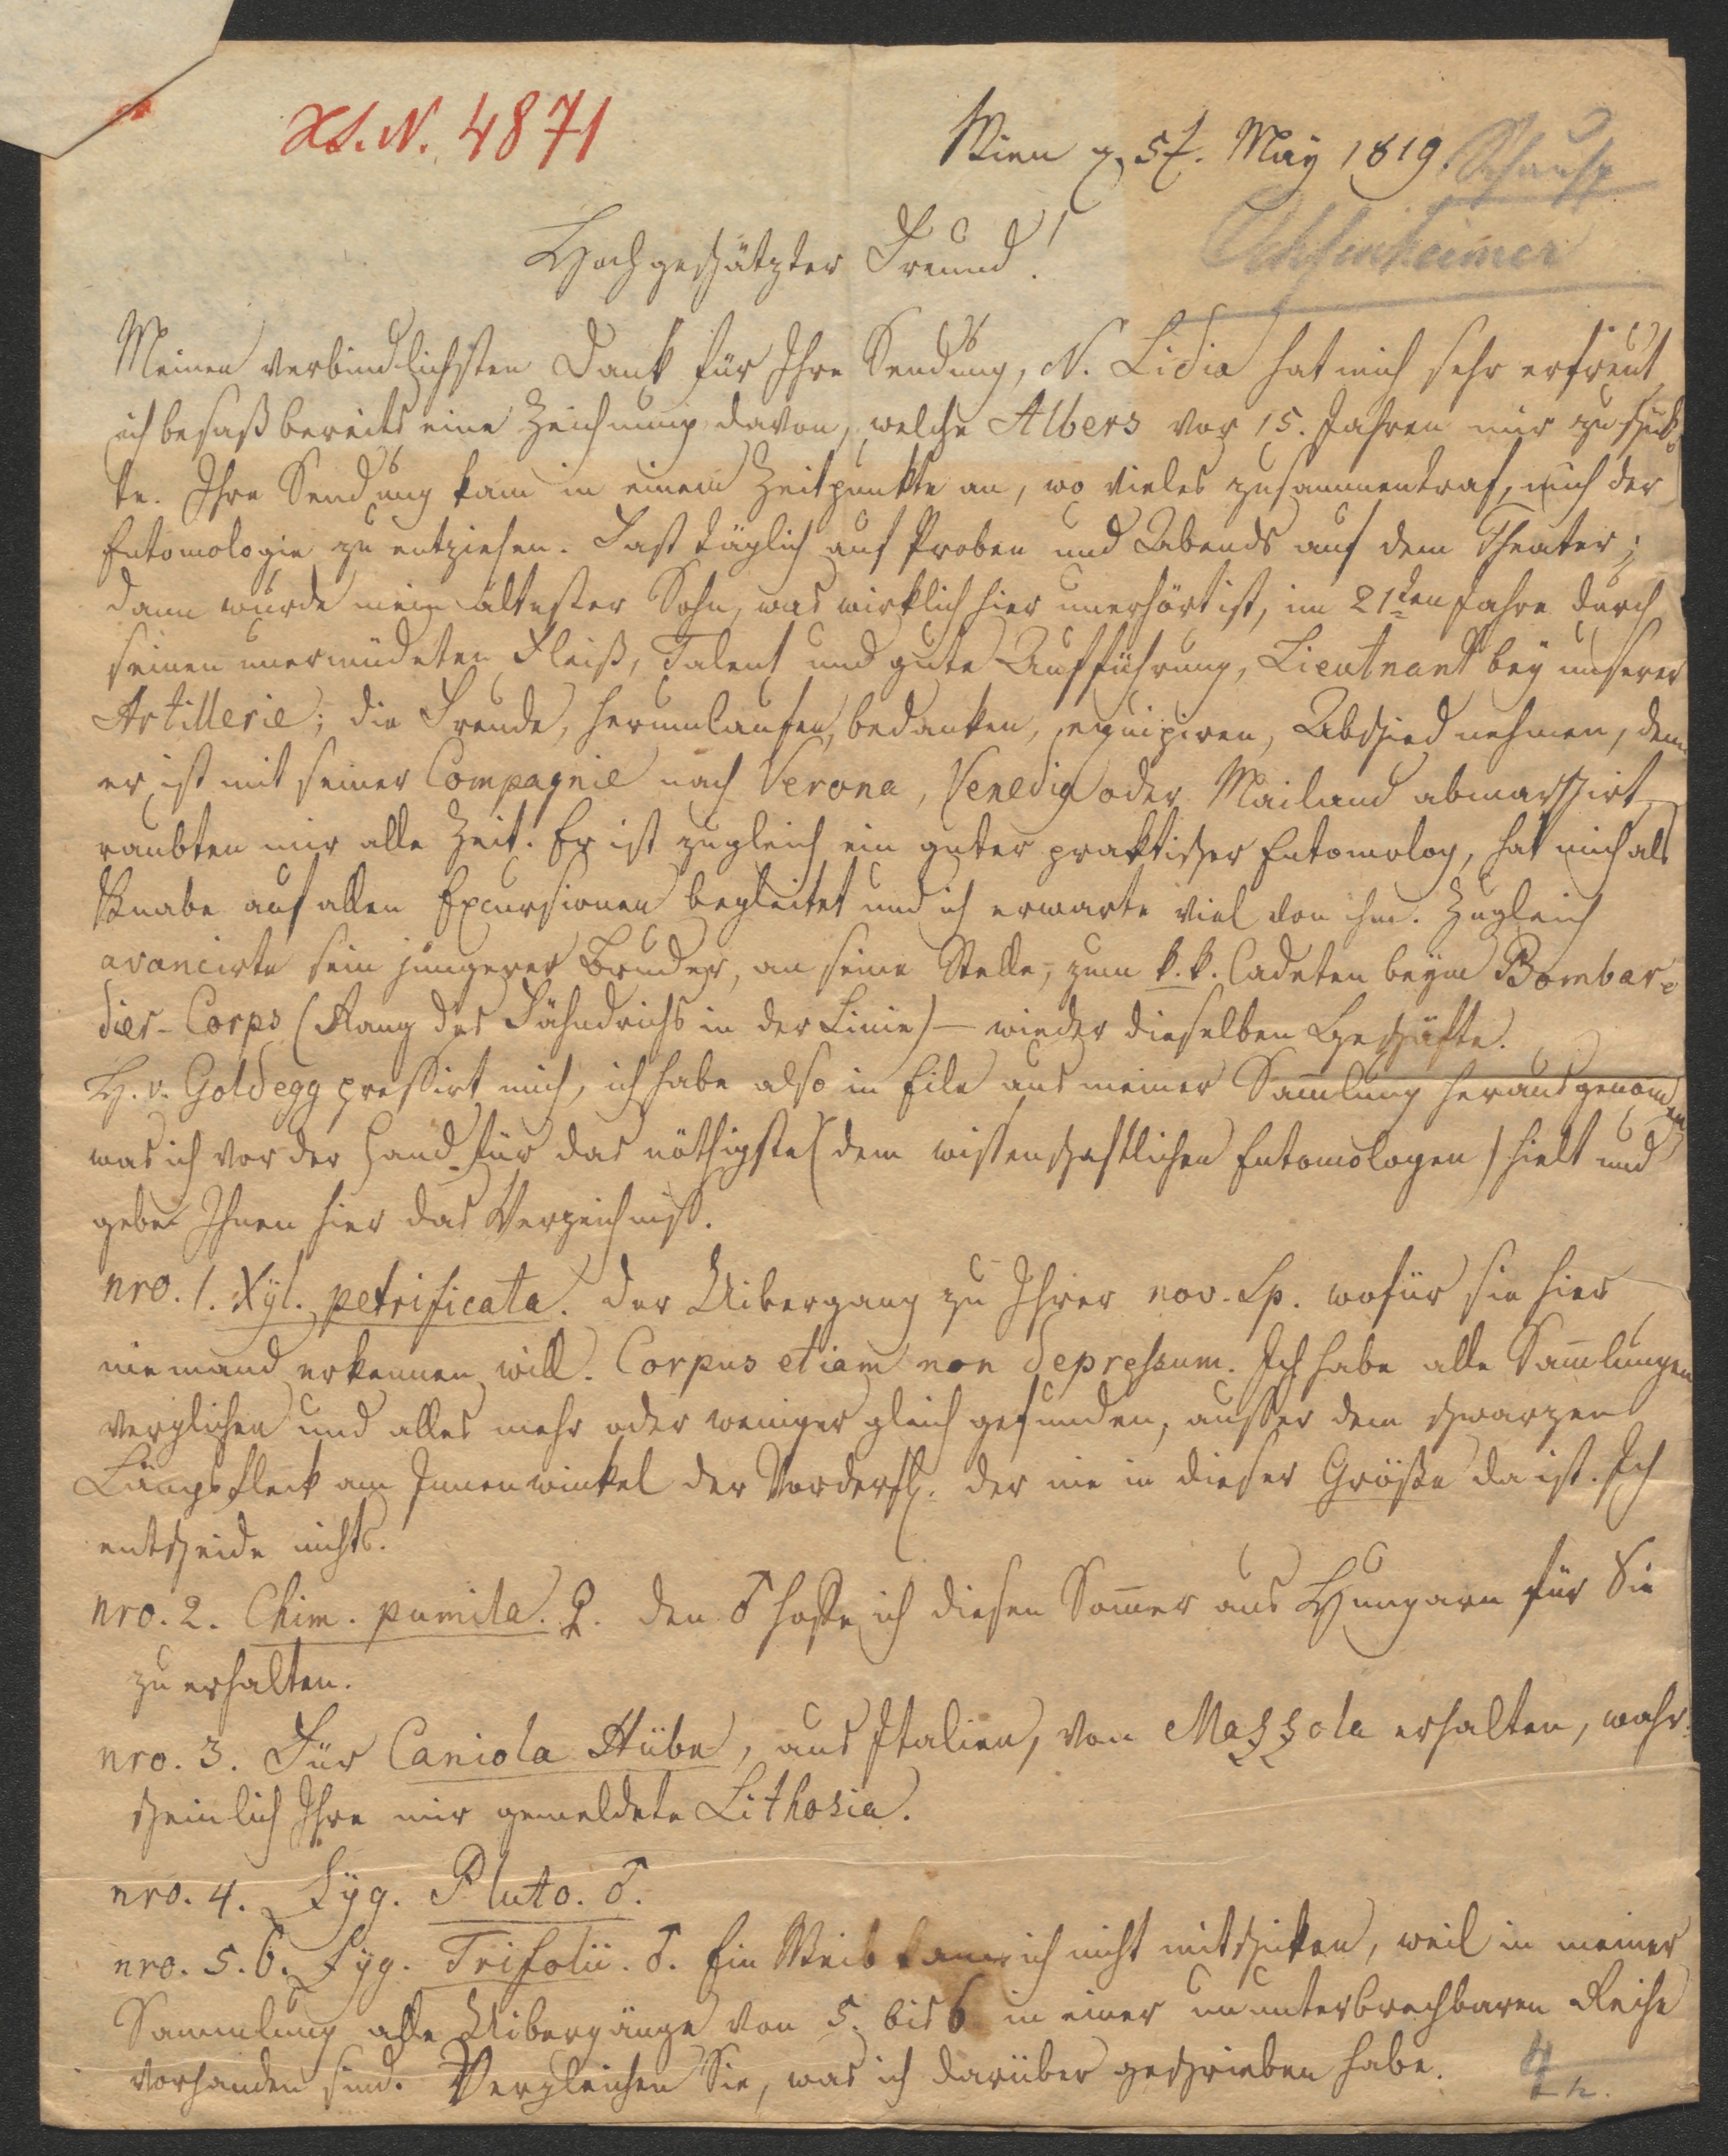 H.I.N. 4871
Wien d. 5t. May 1819.
Schausp
Ochsenheimer
Hochgeschätzter Freund!
Meinen verbindlichsten Dank für Ihre Sendung, N. Lidia hat mich sehr erfreut,
ich besaß bereits eine Zeichnung davon, welche Albers vor 15. Jahren mir zuschick-
te. Ihre Sendung kam in einem Zeitpunkte an, wo vieles zusammentraf, mich der
Entomologie zu entziehen. Fast täglich auf Proben und Abends auf dem Theater;
dann wurde mein ältester Sohn, was wirklich hier unerhört ist, im 21ten Jahre durch
seinen unermüdeten Fleiß, Talent und gute Aufführung, Lieutnant bey unserer
Artillerie; die Freude, herumlaufen, bedanken, equipiren, Abschied nehmen, denn
er ist mit seiner Compagnie nach Verona, Venedig oder Mailand abmarschirt,
raubten mir alle Zeit. Er ist zugleich ein guter praktischer Entomolog, hat mich als
Knabe auf allen Excursionen begleitet und ich erwarte viel von ihm. Zugleich
avancirte sein jüngerer Bruder, an seine Stelle, zum k. k. Cadeten beym Bombar-
dier-Corps (Rang des Fähndrichs in der Linie) – wieder dieselben Geschäfte.
H. v. Goldegg pressirt mich, ich habe also in Eile aus meiner Sam̄lung herausgenom̄en
was ich vor der Hand für das nöthigste (dem wissenschaftlichen Entomologen) hielt und
gebe Ihnen hier das Verzeichniss.
nro. 1. Xyl. petrificata. der Uibergang zu Ihrer nov. Sp. wofür sie hier
niemand erkennen will. Corpus etiam non depressum. Ich habe alle Sam̄lungen
verglichen und alles mehr oder weniger gleich gefunden, ausser dem schwarzen
Längsfleck am Innenwinkel der Vorderfl. der nie in dieser Größe da ist. Ich
entscheide nichts.
nro. 2. Chim. pumila. ♀. den ♂ hoffe ich diesen Som̄er aus Hungarn für Sie
zu erhalten.
nro. 3. Für Caniola Hübn, aus Italien, von Mazzola erhalten, wahr-
scheinlich Ihre mir gemeldete Lithosia.
nro. 4. Zyg. Pluto. ♂.
nro. 5. 6. Zyg. Trifolii. ♂. Ein Weib kann ich nicht mitschicken, weil in meiner
Sammlung alle Uibergänge von 5. bis 6 in einer ununterbrechbaren Reihe
vorhanden sind. Vergleichen Sie, was ich darüber geschrieben habe.